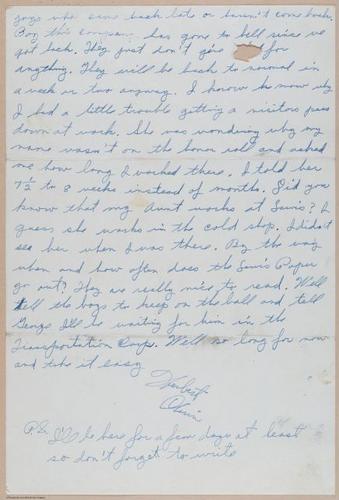 guys who came back late or haven't come back.
Boy this company has gone to hell since we
got back. They just don't give for
anything. They will be back to normal in
a week or two anyway. I know he now why
I had a little trouble getting a visitors pass
down at work. She was wondering why my
name wasn't on the honor roll and asked
me how long I worked there. I told her
7½ to 8 weeks instead of months. Did you
know that my Aunt works at Lewis? I
guess she works in the cold shop. I didn't
see her when I was there. By the way
when and how often does the Lewis Paper
go out? They are really nice to read. Well
tell the boys to keep on the ball and tell
George I'll be waiting for him in the
Transportation Corps. Well so long for now
and take it easy
P.S. I'll be here for a few days at least
so don't forget to write